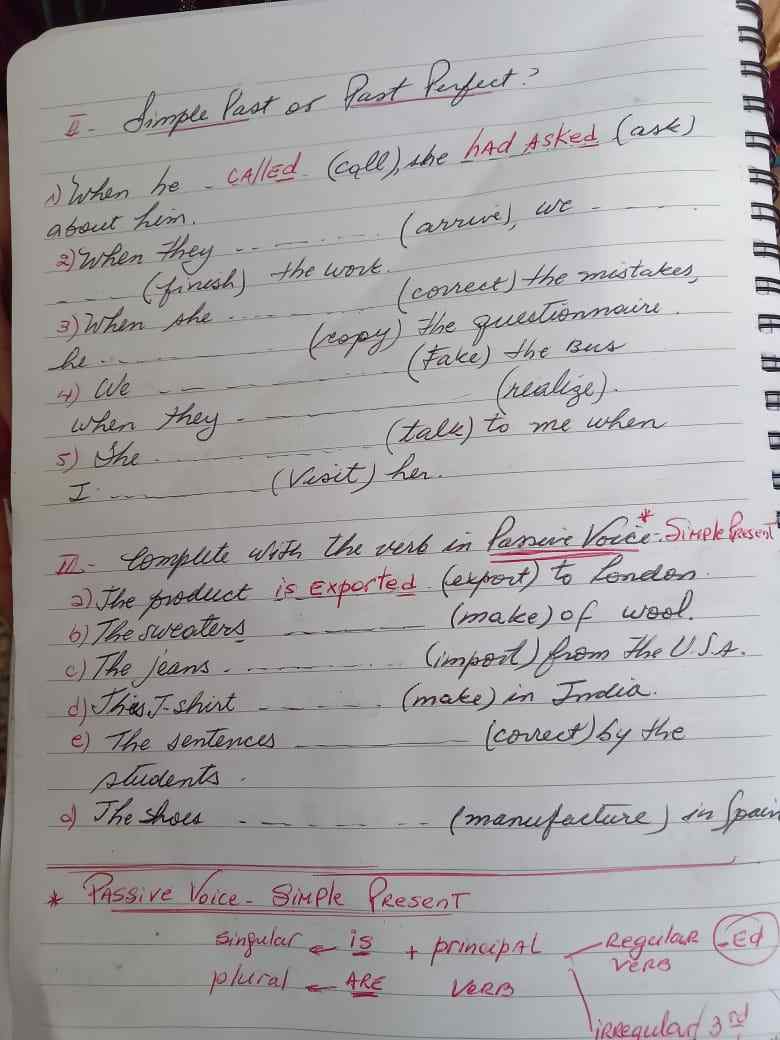 II- Simple Past or Past Perfect?
1) When he - CAllED - (call), she hAd Asked (ask)
about him.
2) When they -------- (arrive), we - ------
---- (finish) the work.
3) When she ---------- (correct) the mistakes,
he ------------ (copy) the questionnaire.
4) We ---------- (take) the Bus
when they ---------- (realize).
5) She ---------- (talk) to me when
I --------- (Visit) her.
III- Complete with the verb in Passive Voice* - Simple Present
a) The product is Exported (export) to London.
b) The sweaters -------- (make) of wool.
c) The jeans ---------- (import) from the U.S.A.
d) This T-shirt -------- (make) in India.
e) The sentences -------- (correct) by the
students.
d) The shoes ---------- (manufacture) in Spain
* PASSive Voice - SiMPle PReseNT
singular ← is + principAl Regular -Ed
VeRB
plural ← ARE VeRB
iRRegular 3rd